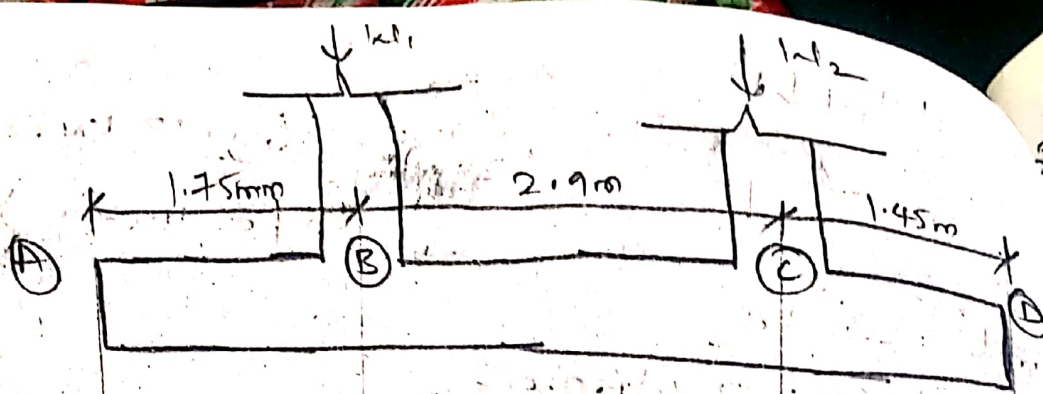 W1
W2
1.75mm
2.9m
1.45m
A
B
C
D